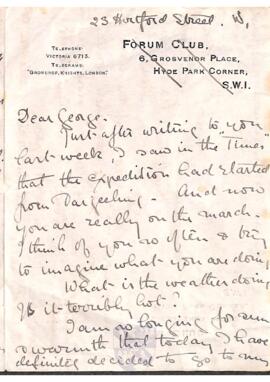 23 Hertford Street. W.
TELEPHONE:
VICTORIA 6713.
TELEGRAMS:
"GROVEHOP, KNIGHTS, LONDON."
FORUM CLUB,
6, GROSVENOR PLACE,
HYDE PARK CORNER,
S.W.1.
Dear George.
Just after writing to you
last week, I saw in the Times
that the expedition had started
from Darjeeling. And now
you are really on the march.
I think of you so often & try
to imagine what you are doing
What is the weather doing
Is it terribly hot?
I am so longing for sun
& warmth that today I have
definitely decided to go to my